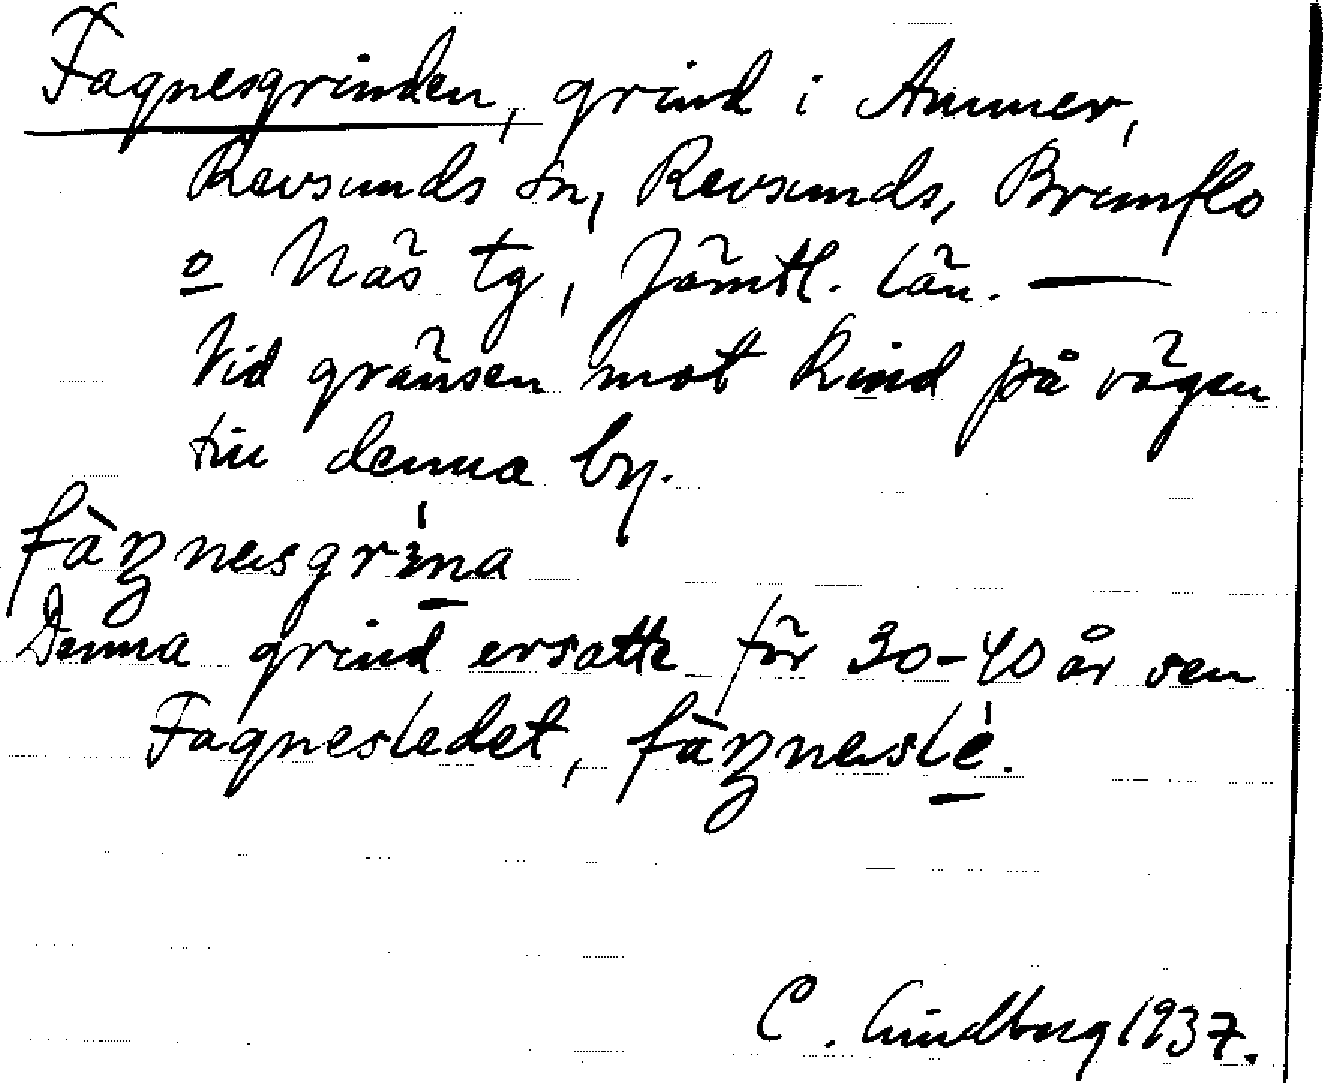 Fagnesgrinden, grind i Ammer,
Revsunds sn, Revsunds, Brunflo
o Näs tg, Jämtl. län. —
Vid gränsen mot Kind på vägen
till denna by.
fàŋnesgrína
Denna grind ersatte för 30-40 år sen
Fagnesledet, fàŋneslé.
C. Lindberg 1937.